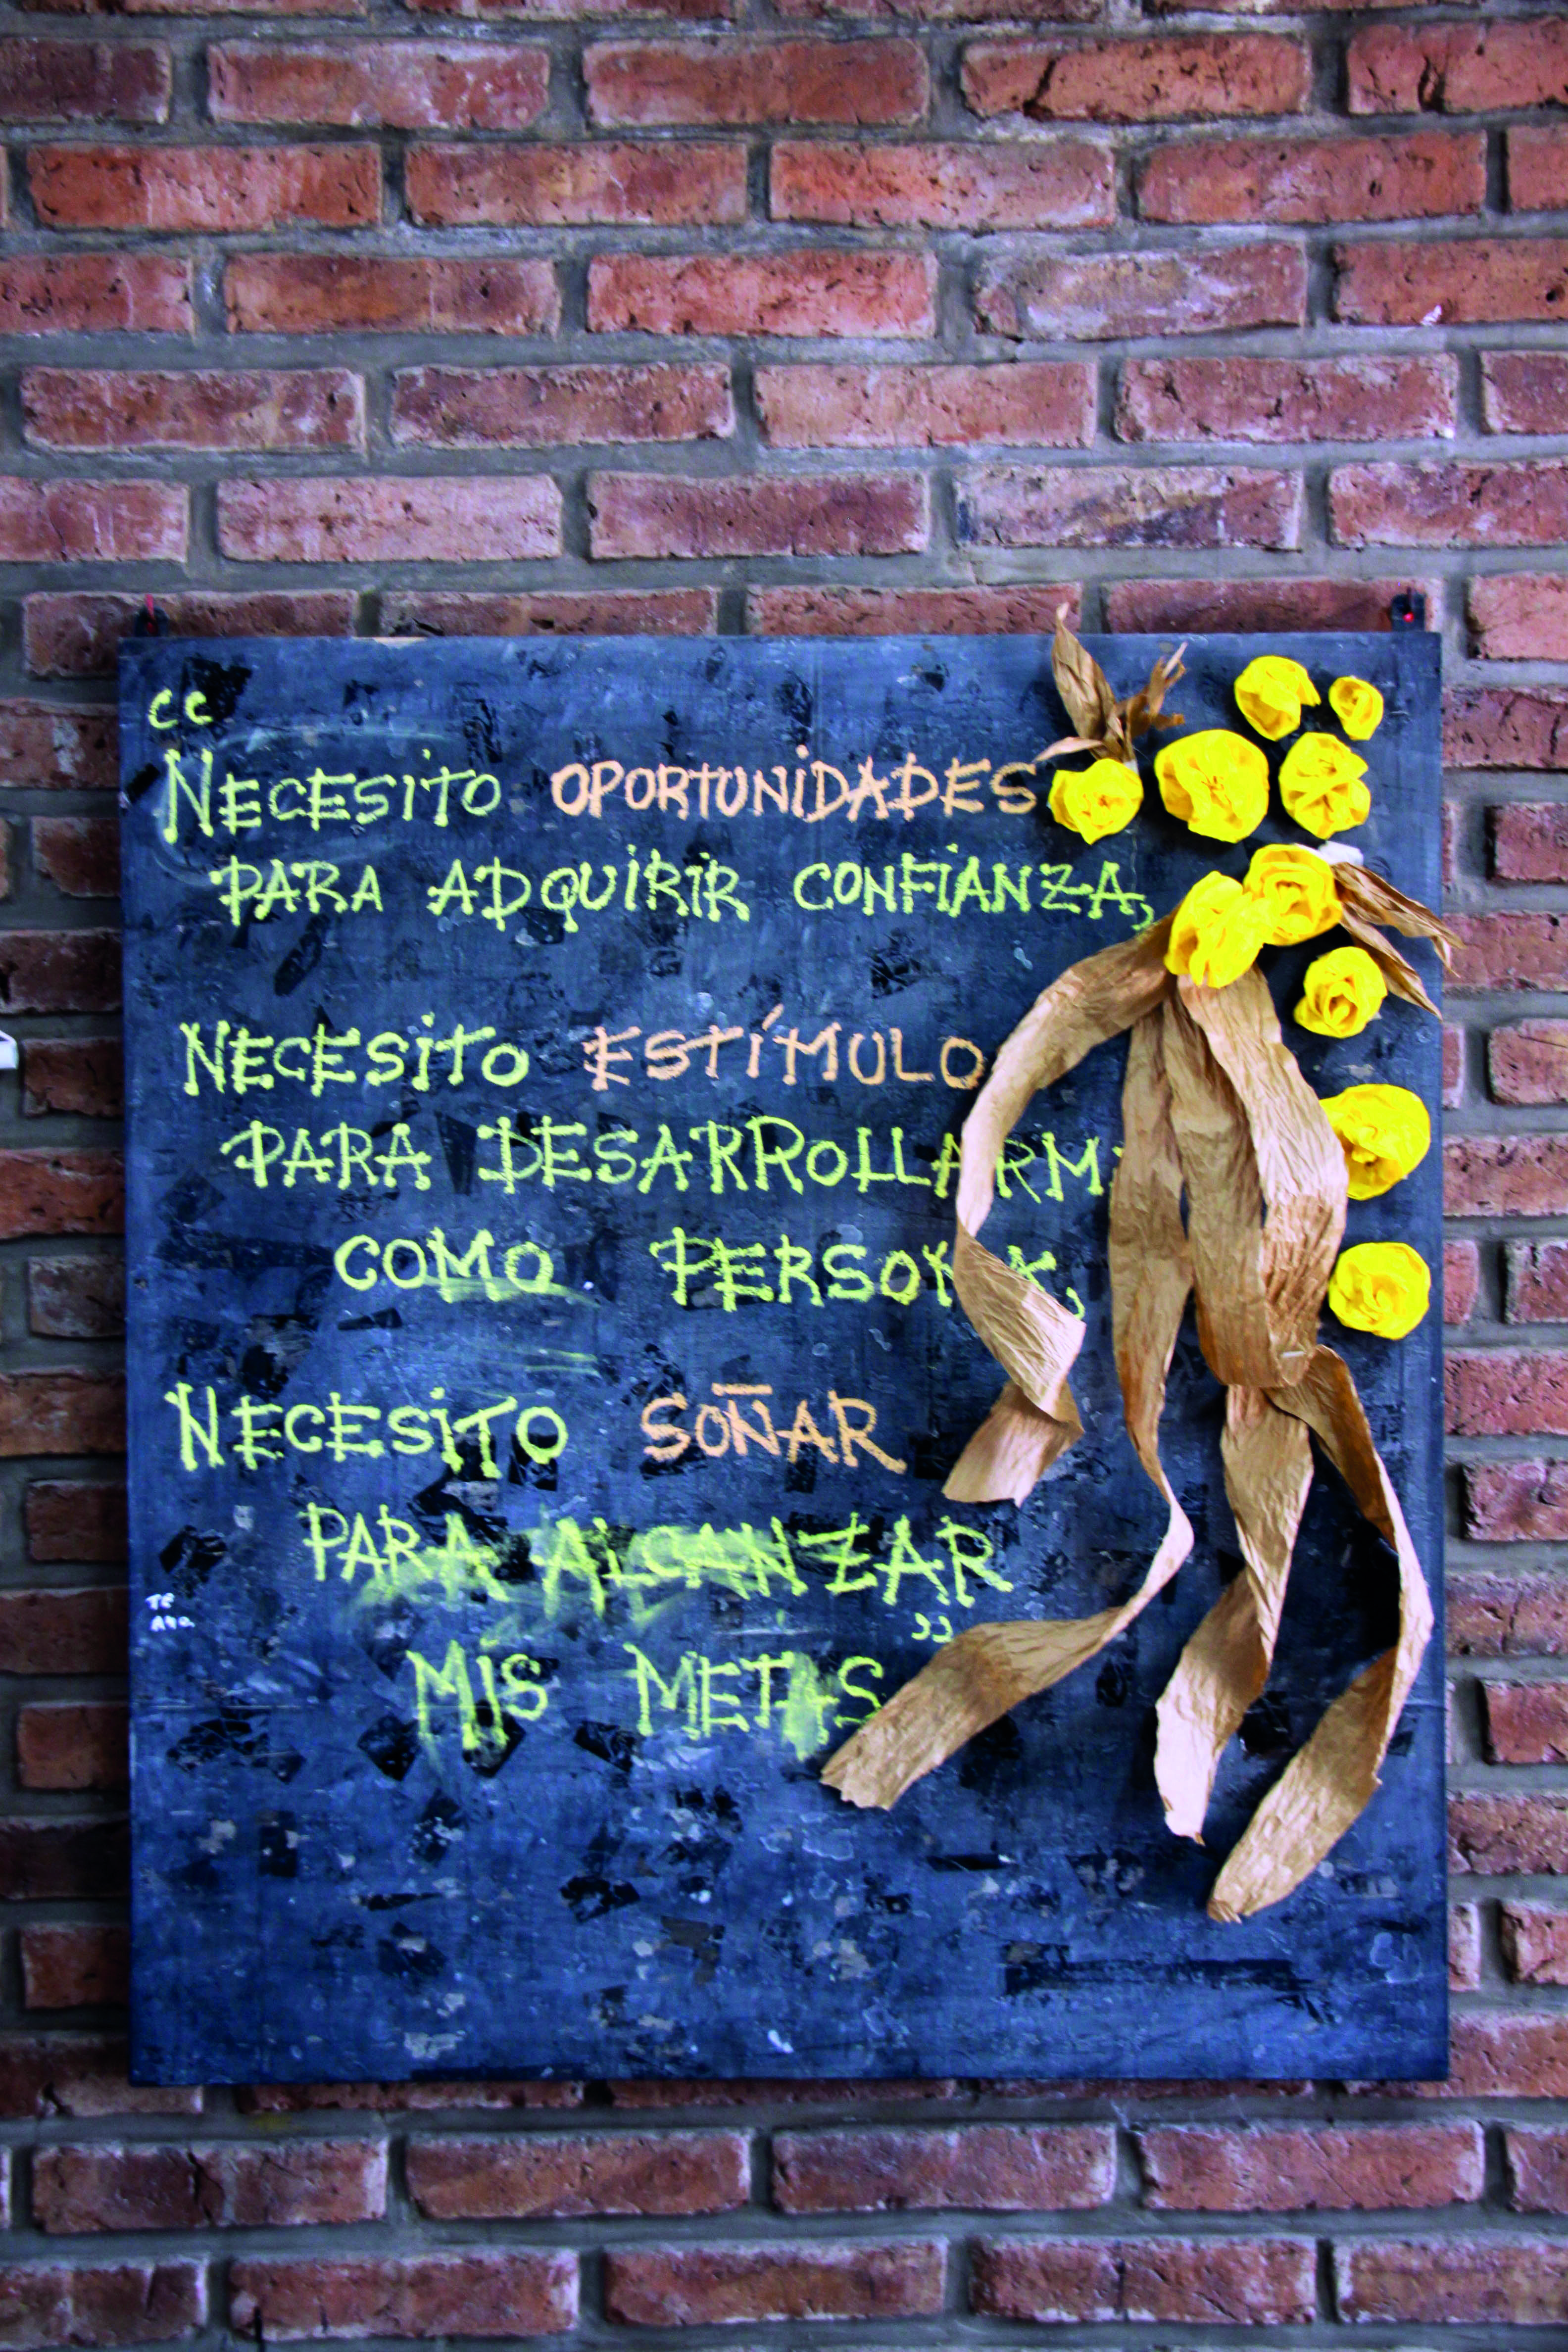 “
NECESiTO OPORTUNiDADES
PARA ADQUiRiR CONFiANZA,
NECESiTO ESTÍMULO
PARA DESARROLLARME
COMO PERSONA,
NECESiTO SOÑAR
PARA ALCANZAR
MiS METAS ”